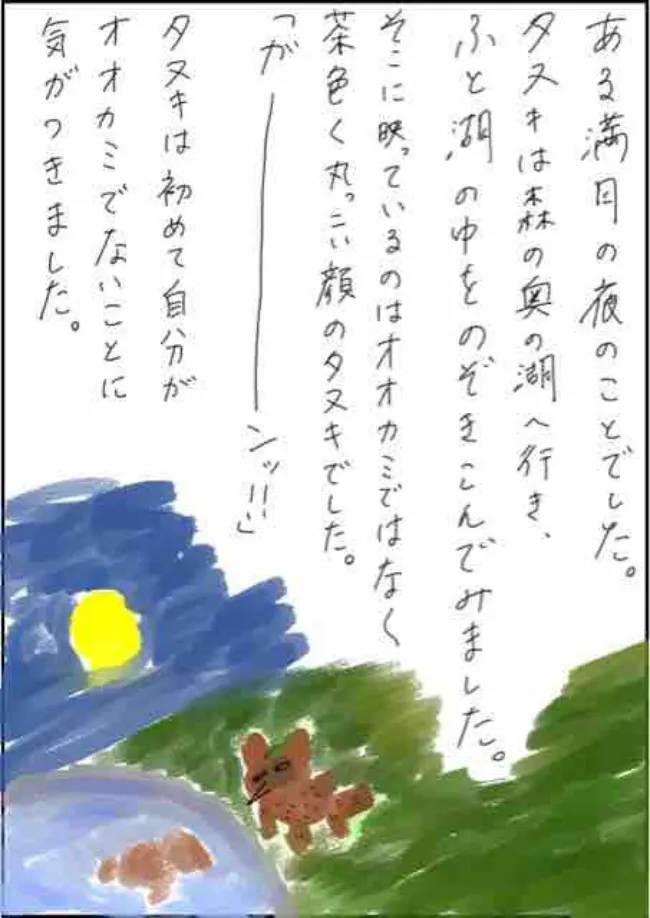 ある満月の夜のことでした。
タヌキは森の奥の湖へ行き、
ふと湖の中をのぞきこんでみました。
そこに映っているのはオオカミではなく
茶色く丸っこい顔のタヌキでした。
「が――――ンッ!!」
タヌキは初めて自分が
オオカミでないことに
気がつきました。